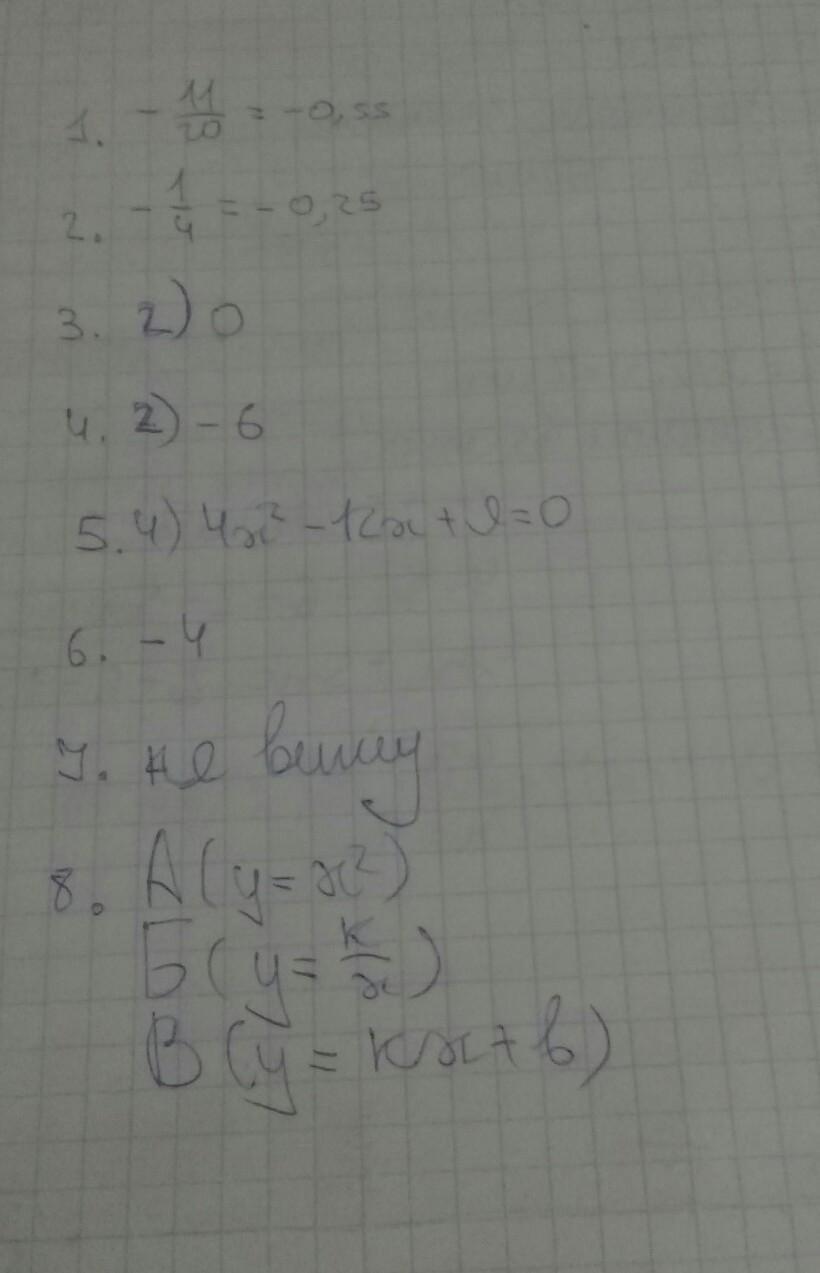 1. - 11/20 = -0,55
2. - 1/4 = -0,25
3. 2) 0
4. 2) - 6
5. 4) 4x² - kx + l = 0
6. - 4
7. не вижу
8. А (y = x²)
Б (y = k/x)
В (y = kx + b)